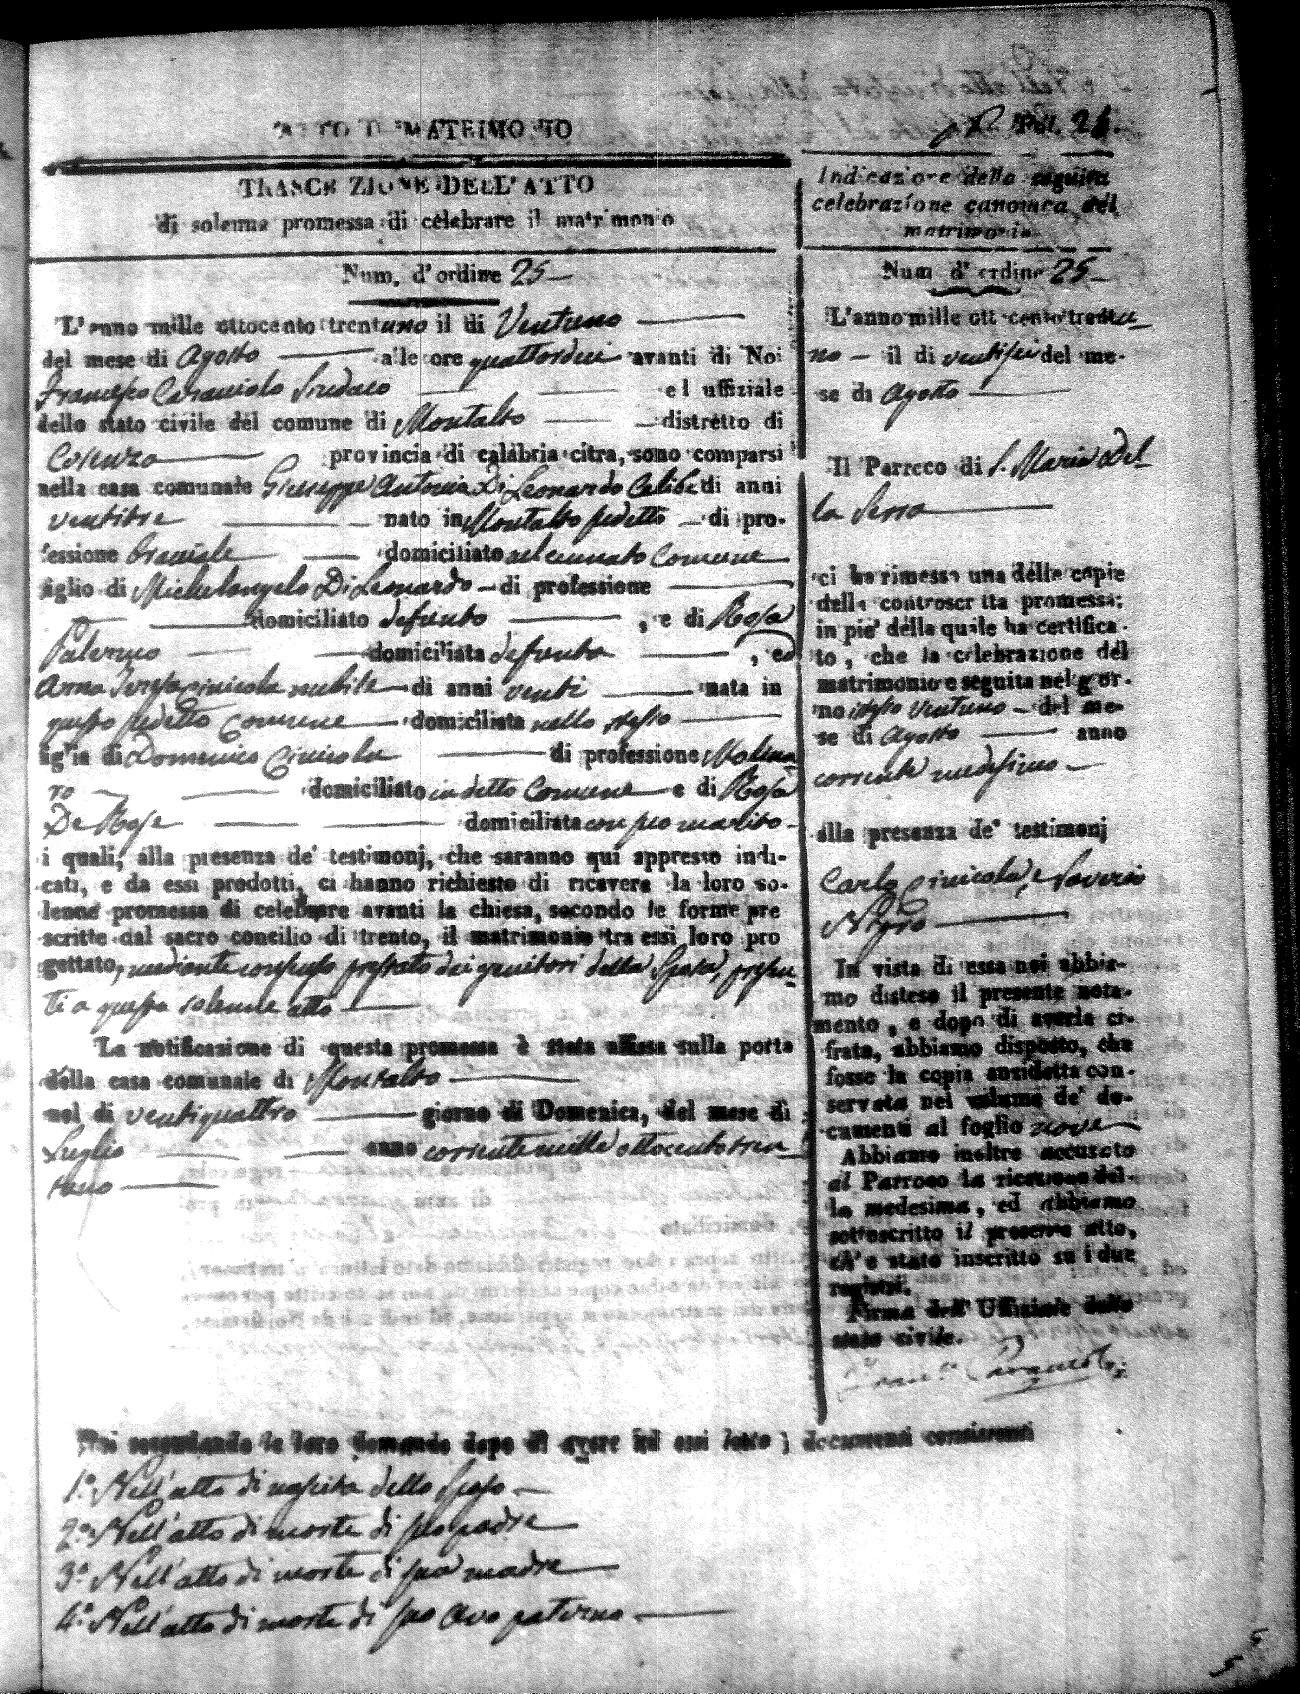 ATTO DI MATRIMONIO
TRASCRIZIONE DELL'ATTO
di solenne promessa di celebrare il matrimonio
Num. d'ordine 25
L'anno mille ottocento trentuno il di Ventuno
del mese di Agosto alle ore quattordici avanti di Noi
Francesco Caracciolo Sindaco ed uffiziale
dello stato civile del comune di Montalto distretto di
Cosenza provincia di calabria citra, sono comparsi
nella casa comunale Giuseppe Antonio Di Leonardo Celibe di anni
ventitre nato in Montalto sudetto di pro-
fessione Braciale domiciliato nel cennato Comune
figlio di Michelangelo Di Leonardo di professione
domiciliato defunto , e di Rosa
Palermo domiciliata defunta , ed
Anna Teresa Cinicola nubile di anni venti nata in
questo sudetto Comune domiciliata nello stesso
figlia di Domenico Cinicola di professione Molina
ro domiciliato in detto Comune e di Rosa
De Rose domiciliata con suo marito
i quali, alla presenza de' testimonj, che saranno qui appresso indi-
cati, e da essi prodotti, ci hanno richiesto di ricevere la loro so-
lenne promessa di celebrare avanti la chiesa, secondo le forme pre
scritte dal sacro concilio di trento, il matrimonio tra essi loro pro
gettato, mediante consenso prestato dai genitori della Sposa, presen
ti a questo solenne atto
La notificazione di questa promessa è stata affissa sulla porta
della casa comunale di Montalto
nel di ventiquattro giorno di Domenica, del mese di
Luglio anno corrente mille ottocento tren
tuno
Indicazione della seguita
celebrazione canonica del
matrimonio
Num d'ordine 25
L'anno mille ott cento trentu
no il di ventisei del me-
se di Agosto
Il Parroco di S. Maria Del
la Serra
ci ha rimesso una delle copie
della controscritta promessa;
in piè della quale ha certifica-
to, che la celebrazione del
matrimonio e seguita nel gior-
no ventuno del me-
se di Agosto anno
corrente medesimo
alla presenza de' testimonj
Carlo Cinicola, e Saverio
Nigro
In vista di essa noi abbia-
mo disteso il presente nota-
mento, e dopo di averla ci-
frata, abbiamo disposto, che
fosse la copia anzidetta con-
servata nel volume de' do-
cumenti al foglio nove
Abbiamo inoltre accusato
al Parroco la ricezione del-
la medesima, ed abbiamo
sottoscritto il presente atto,
ch'è stato inscritto su i due
registri.
Firma dell'Uffiziale dello
stato civile.
Noi secondando le loro domande dopo di avere ad essi letto i documenti consistenti
1.º Nell'atto di nascita dello Sposo
2.º Nell'atto di morte di suo padre
3.º Nell'atto di morte di sua madre
4.º Nell'atto di morte di suo Avo paterno